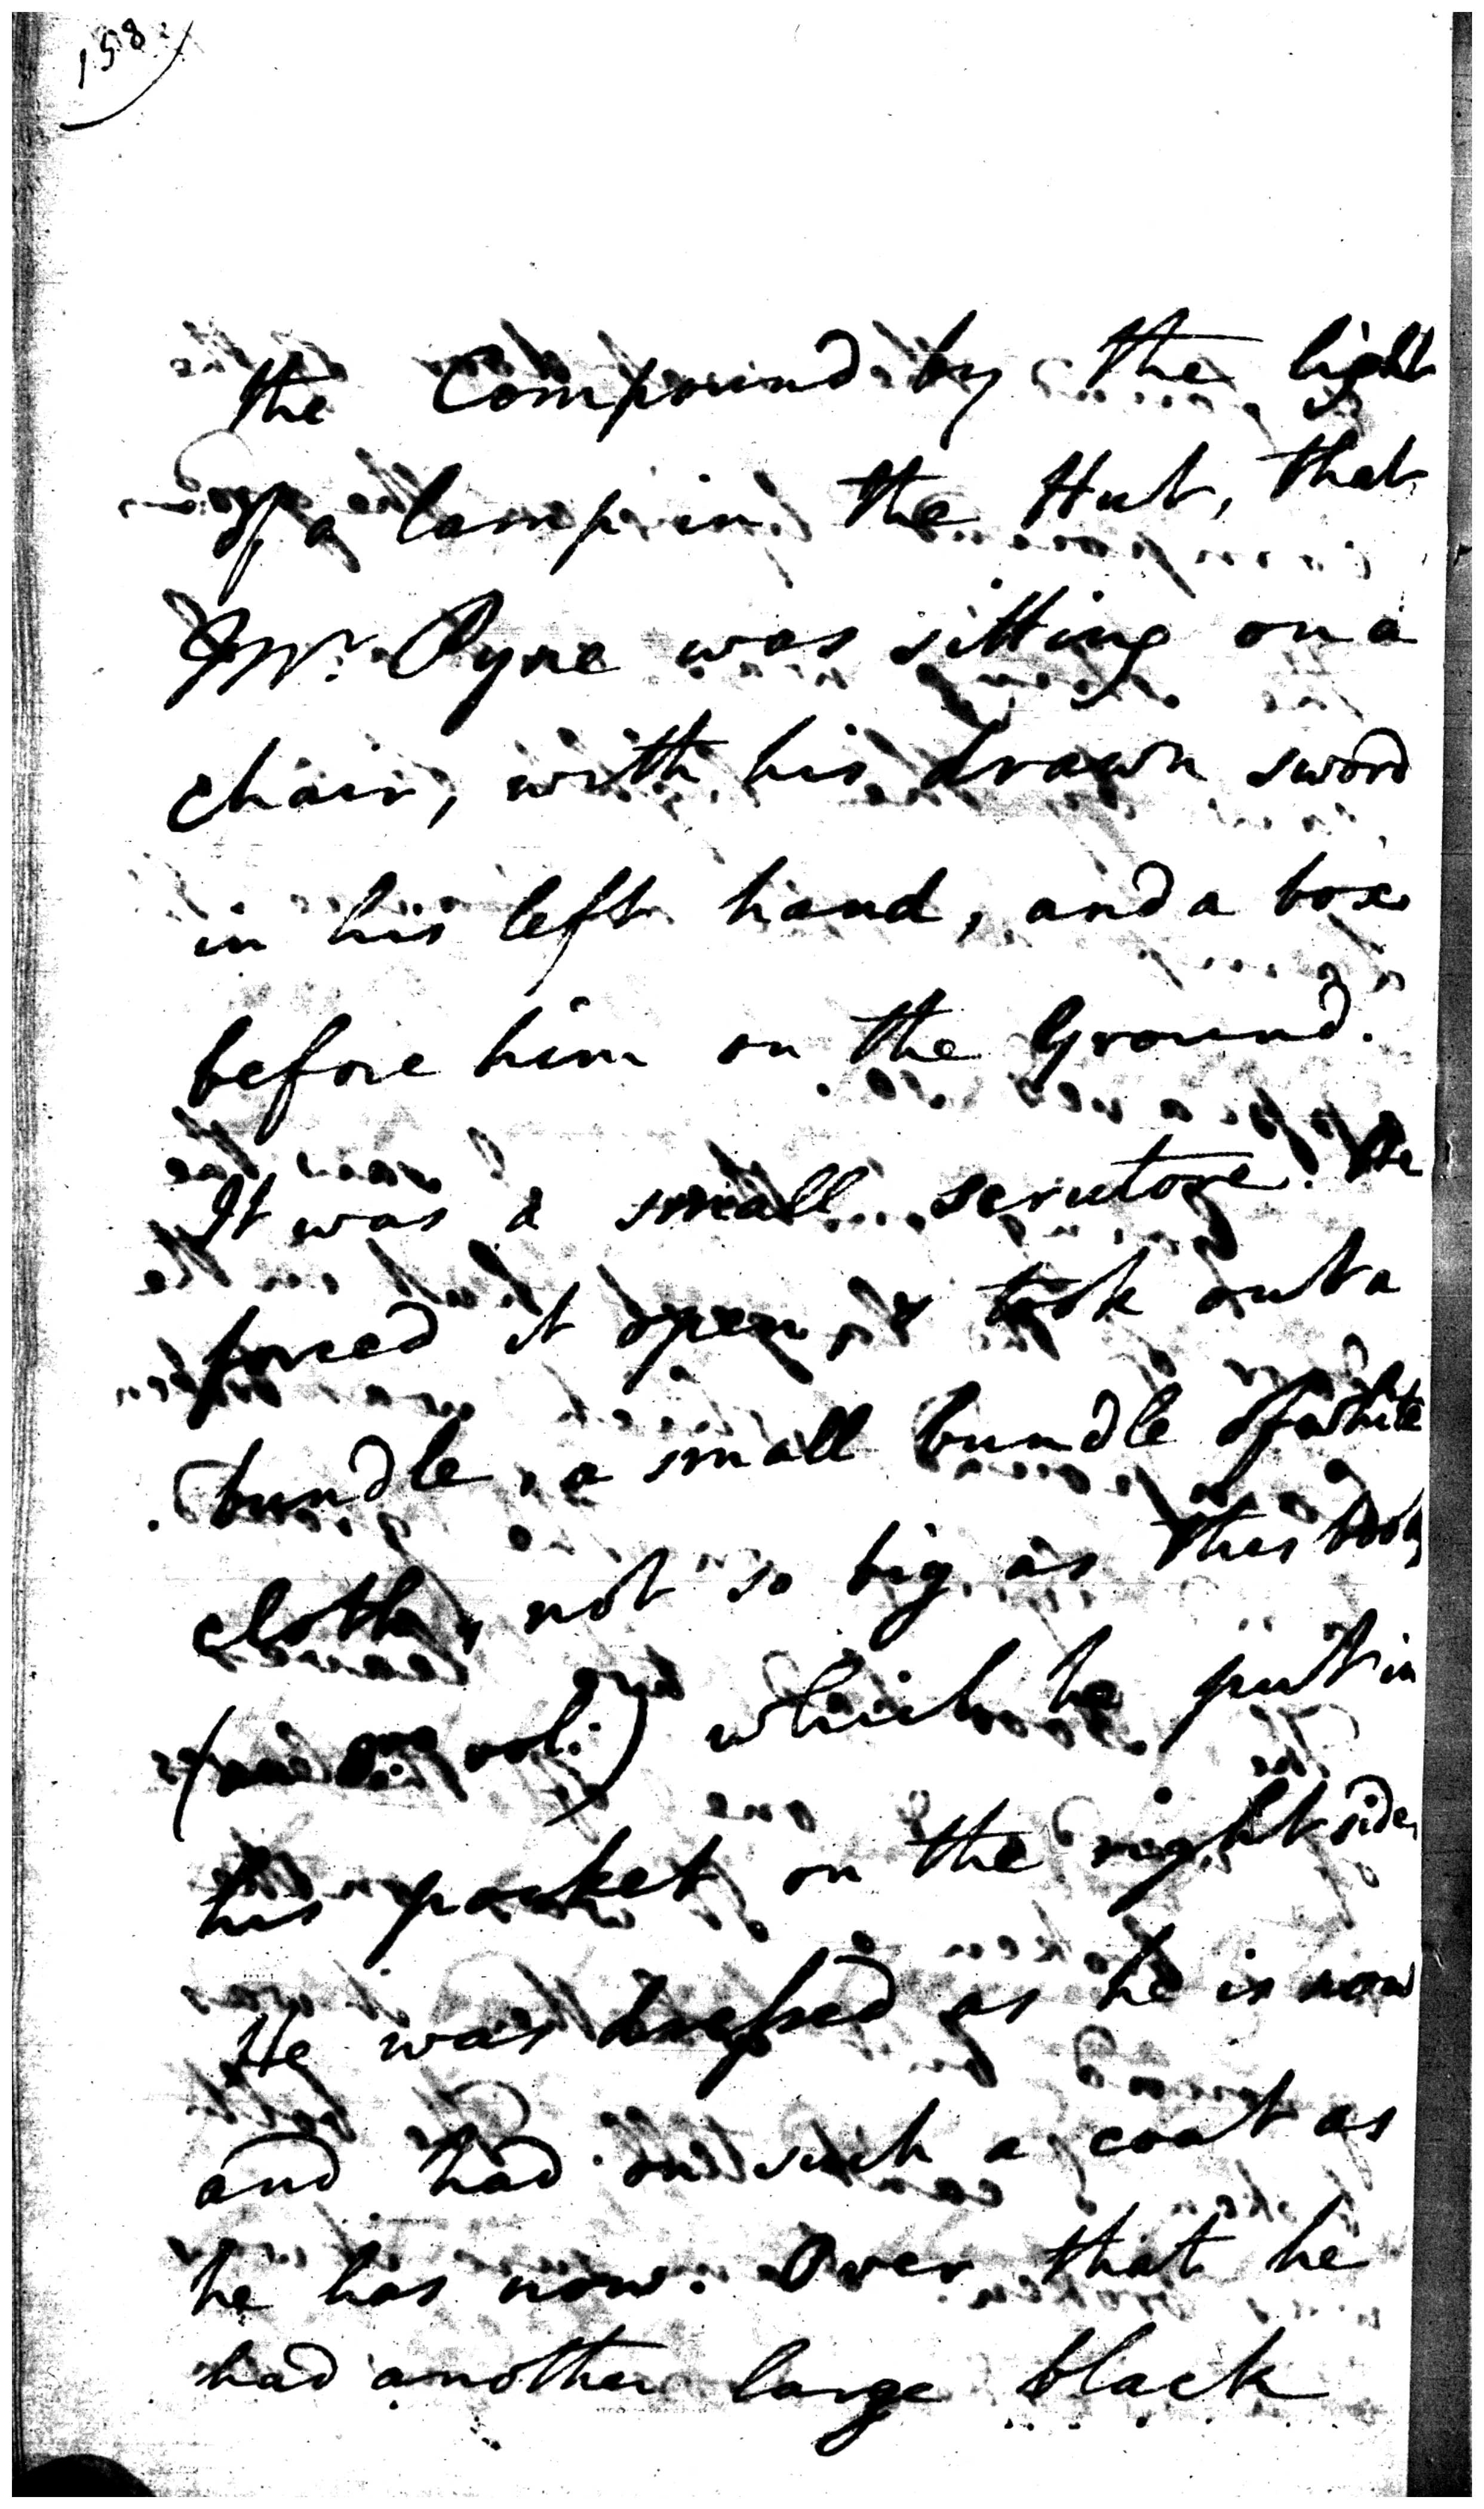 158
the Compound by the light
of a lamp in the Hut, that
Mr. Pyne was sitting on a
chair, with his drawn sword
in his left hand, and a box
before him on the Ground.
It was a small scrutore. He
forced it open, & took out a
bundle, a small bundle of white
cloth, not so big as this book
( vol:) which he put in
his pocket on the right side.
He was dressed as he is now
and had on such a coat as
he has now. Over that he
had another large black